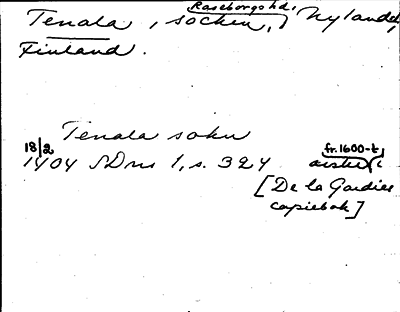 Tenala, socken, Raseborgs hd, Nyland,
Finland.
Tenala sokn
18/2 1404 SDns 1, s. 324 avskr. i fr. 1600-t
[De la Gardies
copiebok]